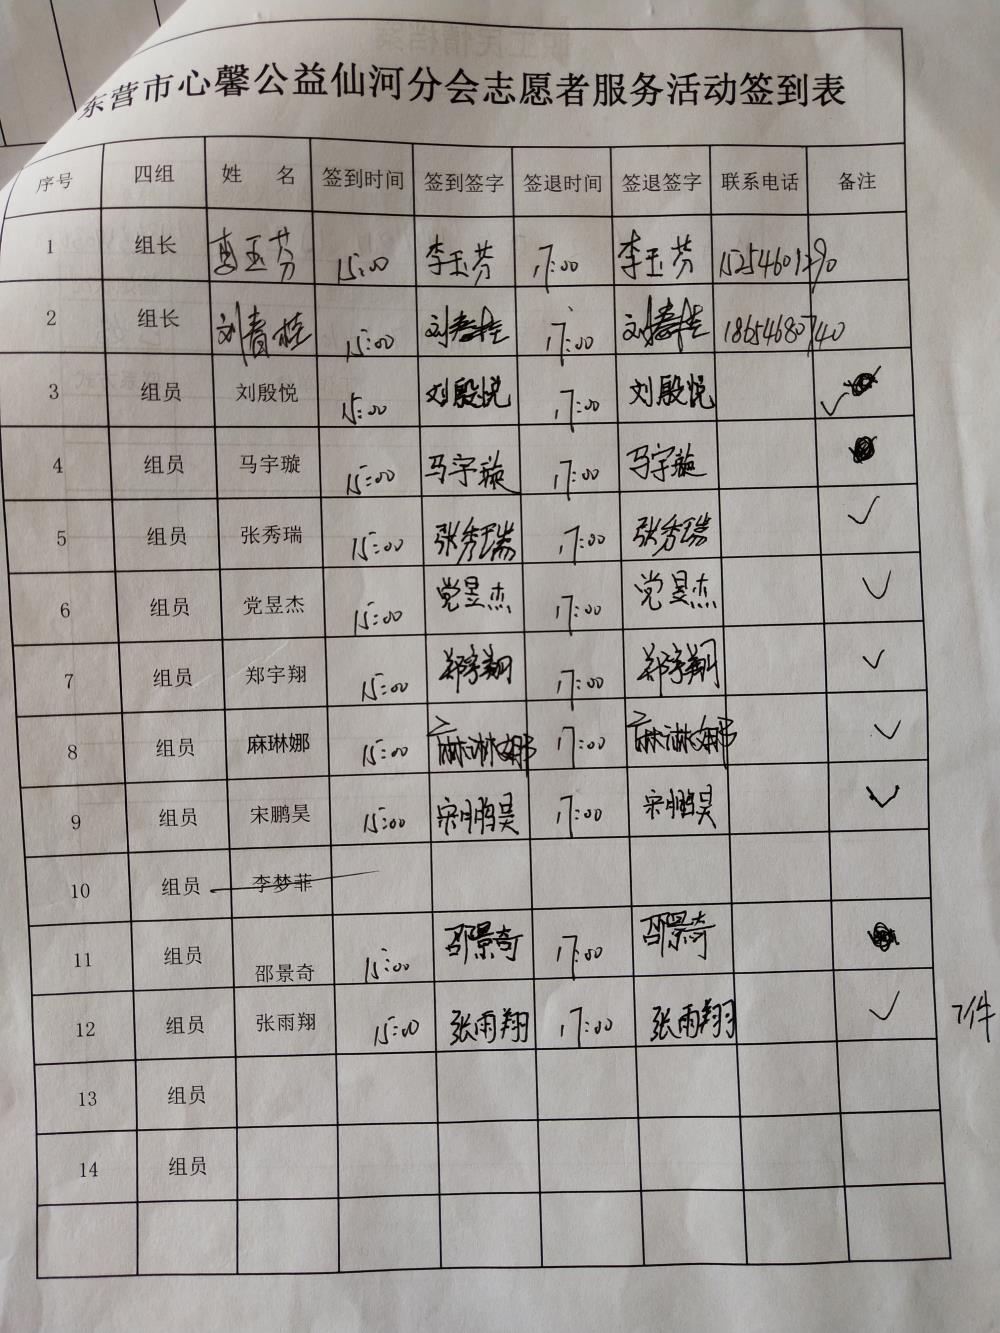 东营市心馨公益仙河分会志愿者服务活动签到表
序号 四组 姓 名 签到时间 签到签字 签退时间 签退签字 联系电话 备注
1 组长 李玉芬 15:00 李玉芬 17:00 李玉芬 15254601290
2 组长 刘春桂 15:00 刘春桂 17:00 刘春桂 18654680740
3 组员 刘殷悦 15:00 刘殷悦 17:00 刘殷悦 ✓
4 组员 马宇璇 15:00 马宇璇 17:00 马宇璇
5 组员 张秀瑞 15:00 张秀瑞 17:00 张秀瑞 ✓
6 组员 党昱杰 15:00 党昱杰 17:00 党昱杰 ✓
7 组员 郑宇翔 15:00 郑宇翔 17:00 郑宇翔 ✓
8 组员 麻琳娜 15:00 麻淋娜 17:00 麻淋娜 ✓
9 组员 宋鹏昊 15:00 宋鹏昊 17:00 宋鹏昊 ✓
10 组员 李梦菲
11 组员 邵景奇 15:00 邵景奇 17:00 邵景奇
12 组员 张雨翔 15:00 张雨翔 17:00 张雨翔 ✓ 7件
13 组员
14 组员